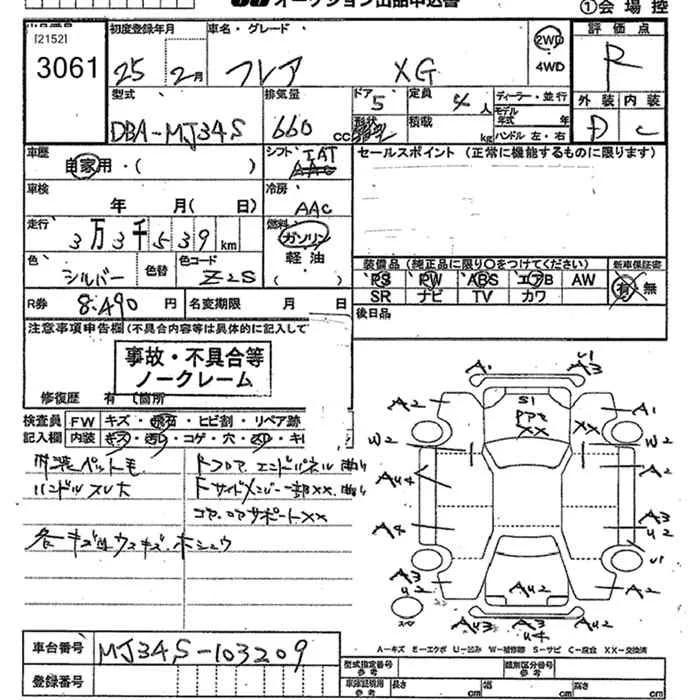 オークション出品申込書
①会場控
[2152]
3061
初度登録年月
25 2月
車名・グレード
フレア XG
2WD
4WD
評価点
R
型式
DBA-MJ34S
排気量
660 CC
ドア
5
形状
定員
4人
積載
kg
ディーラー・並行
モデル年式 年
ハンドル 左・右
外装 内装
D C
車歴
自家用・( )
シフト
IAT
AAC
セールスポイント (正常に機能するものに限ります)
車検
年 月( 日)
冷房
AAC
走行
3万3千539km
燃料
ガソリン
軽油
( )
色
シルバー
色替
色コード
Z2S
装備品 (純正品に限り○をつけてください)
新車保証書
PS PW ABS エアB AW
SR ナビ TV カワ
有・無
R券 8.490円
名変期限 月 日
後日品
注意事項申告欄(不具合内容等は具体的に記入して
事故・不具合等
ノークレーム
修復歴 有 ( 箇所
検査員
記入欄
FW キズ・飛石・ヒビ割・リペア跡
内装 キズ・汚れ・コゲ・穴・スレ・キ
内装ペットモ
ハンドルスレ大
各キズ凹ウスキズ.ホシュウ
Fフロア エンドパネル 曲り
Fサイドメンバー一部XX.曲り
コア.ロアサポートXX
A1
U1
A3
A2
S1
PP2
XX
XX
A1
W2
W2
AU4
A2
A4
A3
U2
U1
A3
U2
AU2
AU2
A2
スペア
AU3
A3
U4
A-キズ E-エクボ U-凹み W-補修跡 S-サビ C-腐食 XX-交換済
車台番号 MJ34S-103209
登録番号
型式指定番号
参考
類別区分番号
参考
車庫証明用
参考
長さ cm
幅 cm
高さ cm